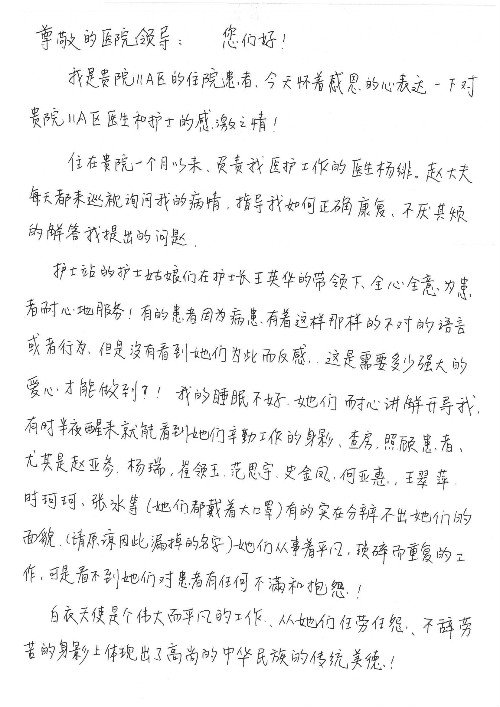 尊敬的医院领导： 您们好！
我是贵院11A区的住院患者，今天怀着感恩的心表达一下对
贵院11A区医生和护士的感激之情！
住在贵院一个月以来、负责我医护工作的医生杨绯。赵大夫
每天都来巡视询问我的病情，指导我如何正确康复、不厌其烦
的解答我提出的问题.
护士站的护士姑娘们在护士长王英华的带领下、全心全意、为患
者耐心地服务！有的患者因为病患，有着这样那样的不对的语言
或者行为，但是没有看到她们为此而反感，这是需要多少强大的
爱心才能做到了！我的睡眠不好，她们耐心讲解开导我，
有时半夜醒来就能看到她们辛勤工作的身影、查房、照顾患者、
尤其是赵亚参、杨瑞，崔领玉、范思宇、史金凤、何亚惠，王翠萍、
时珂珂、张冰等（她们都戴着大口罩）有的实在分辨不出她们的
面貌.（请原谅因此漏掉的名字）她们从事着平凡，琐碎而重复的工
作，可是看不到她们对患者有任何不满和抱怨！
白衣天使是个伟大而平凡的工作、从她们任劳任怨、不辞劳
苦的身影上体现出了高尚的中华民族的传统美德！